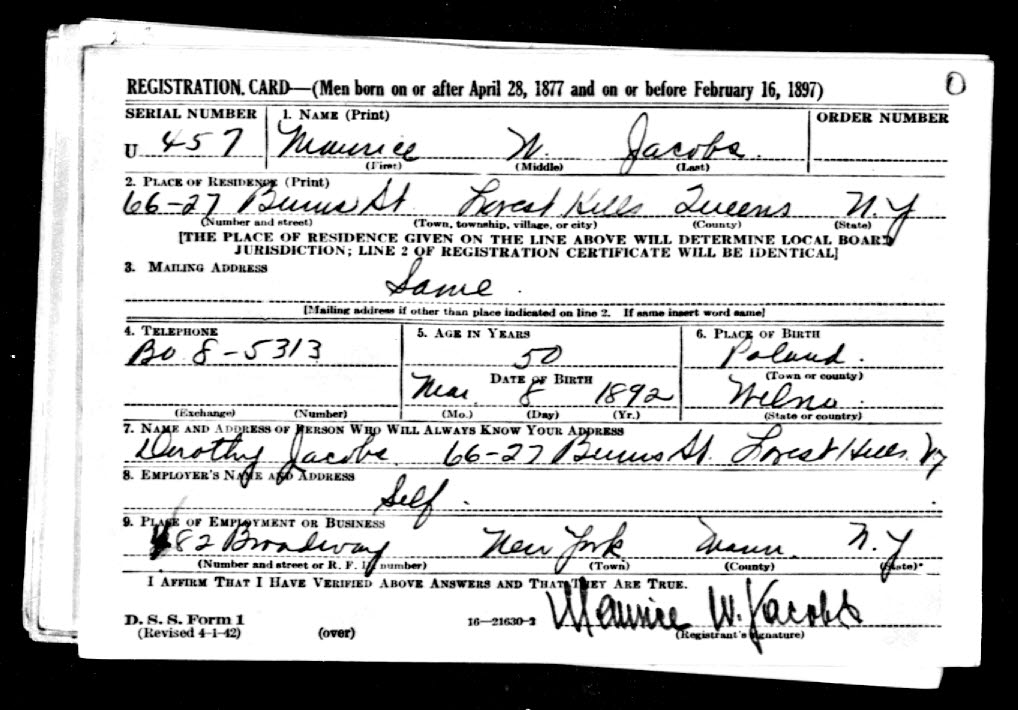 O
REGISTRATION CARD—(Men born on or after April 28, 1877 and on or before February 16, 1897)
SERIAL NUMBER 1. NAME (Print) ORDER NUMBER
U 457 Maurice W. Jacobs.
(First) (Middle) (Last)
2. PLACE OF RESIDENCE (Print)
66-27 Burns St Forest Hills Queens N.Y
(Number and street) (Town, township, village, or city) (County) (State)
[THE PLACE OF RESIDENCE GIVEN ON THE LINE ABOVE WILL DETERMINE LOCAL BOARD
JURISDICTION; LINE 2 OF REGISTRATION CERTIFICATE WILL BE IDENTICAL]
3. MAILING ADDRESS
Same.
[Mailing address if other than place indicated on line 2. If same insert word same]
4. TELEPHONE 5. AGE IN YEARS 6. PLACE OF BIRTH
Bo 8-5313 50 Poland.
(Town or county)
DATE OF BIRTH
Mar. 8 1892 Wilno.
(Exchange) (Number) (Mo.) (Day) (Yr.) (State or country)
7. NAME AND ADDRESS OF PERSON WHO WILL ALWAYS KNOW YOUR ADDRESS
Dorothy Jacobs. 66-27 Burns St. Forest Hills. Ny
8. EMPLOYER'S NAME AND ADDRESS
Self.
9. PLACE OF EMPLOYMENT OR BUSINESS
482 Broadway New York Mann. N.Y
(Number and street or R. F. D. number) (Town) (County) (State)
I AFFIRM THAT I HAVE VERIFIED ABOVE ANSWERS AND THAT THEY ARE TRUE.
Maurice W. Jacobs
D. S. S. Form 1
(Revised 4-1-42) (over) 16—21630-2 (Registrant's signature)